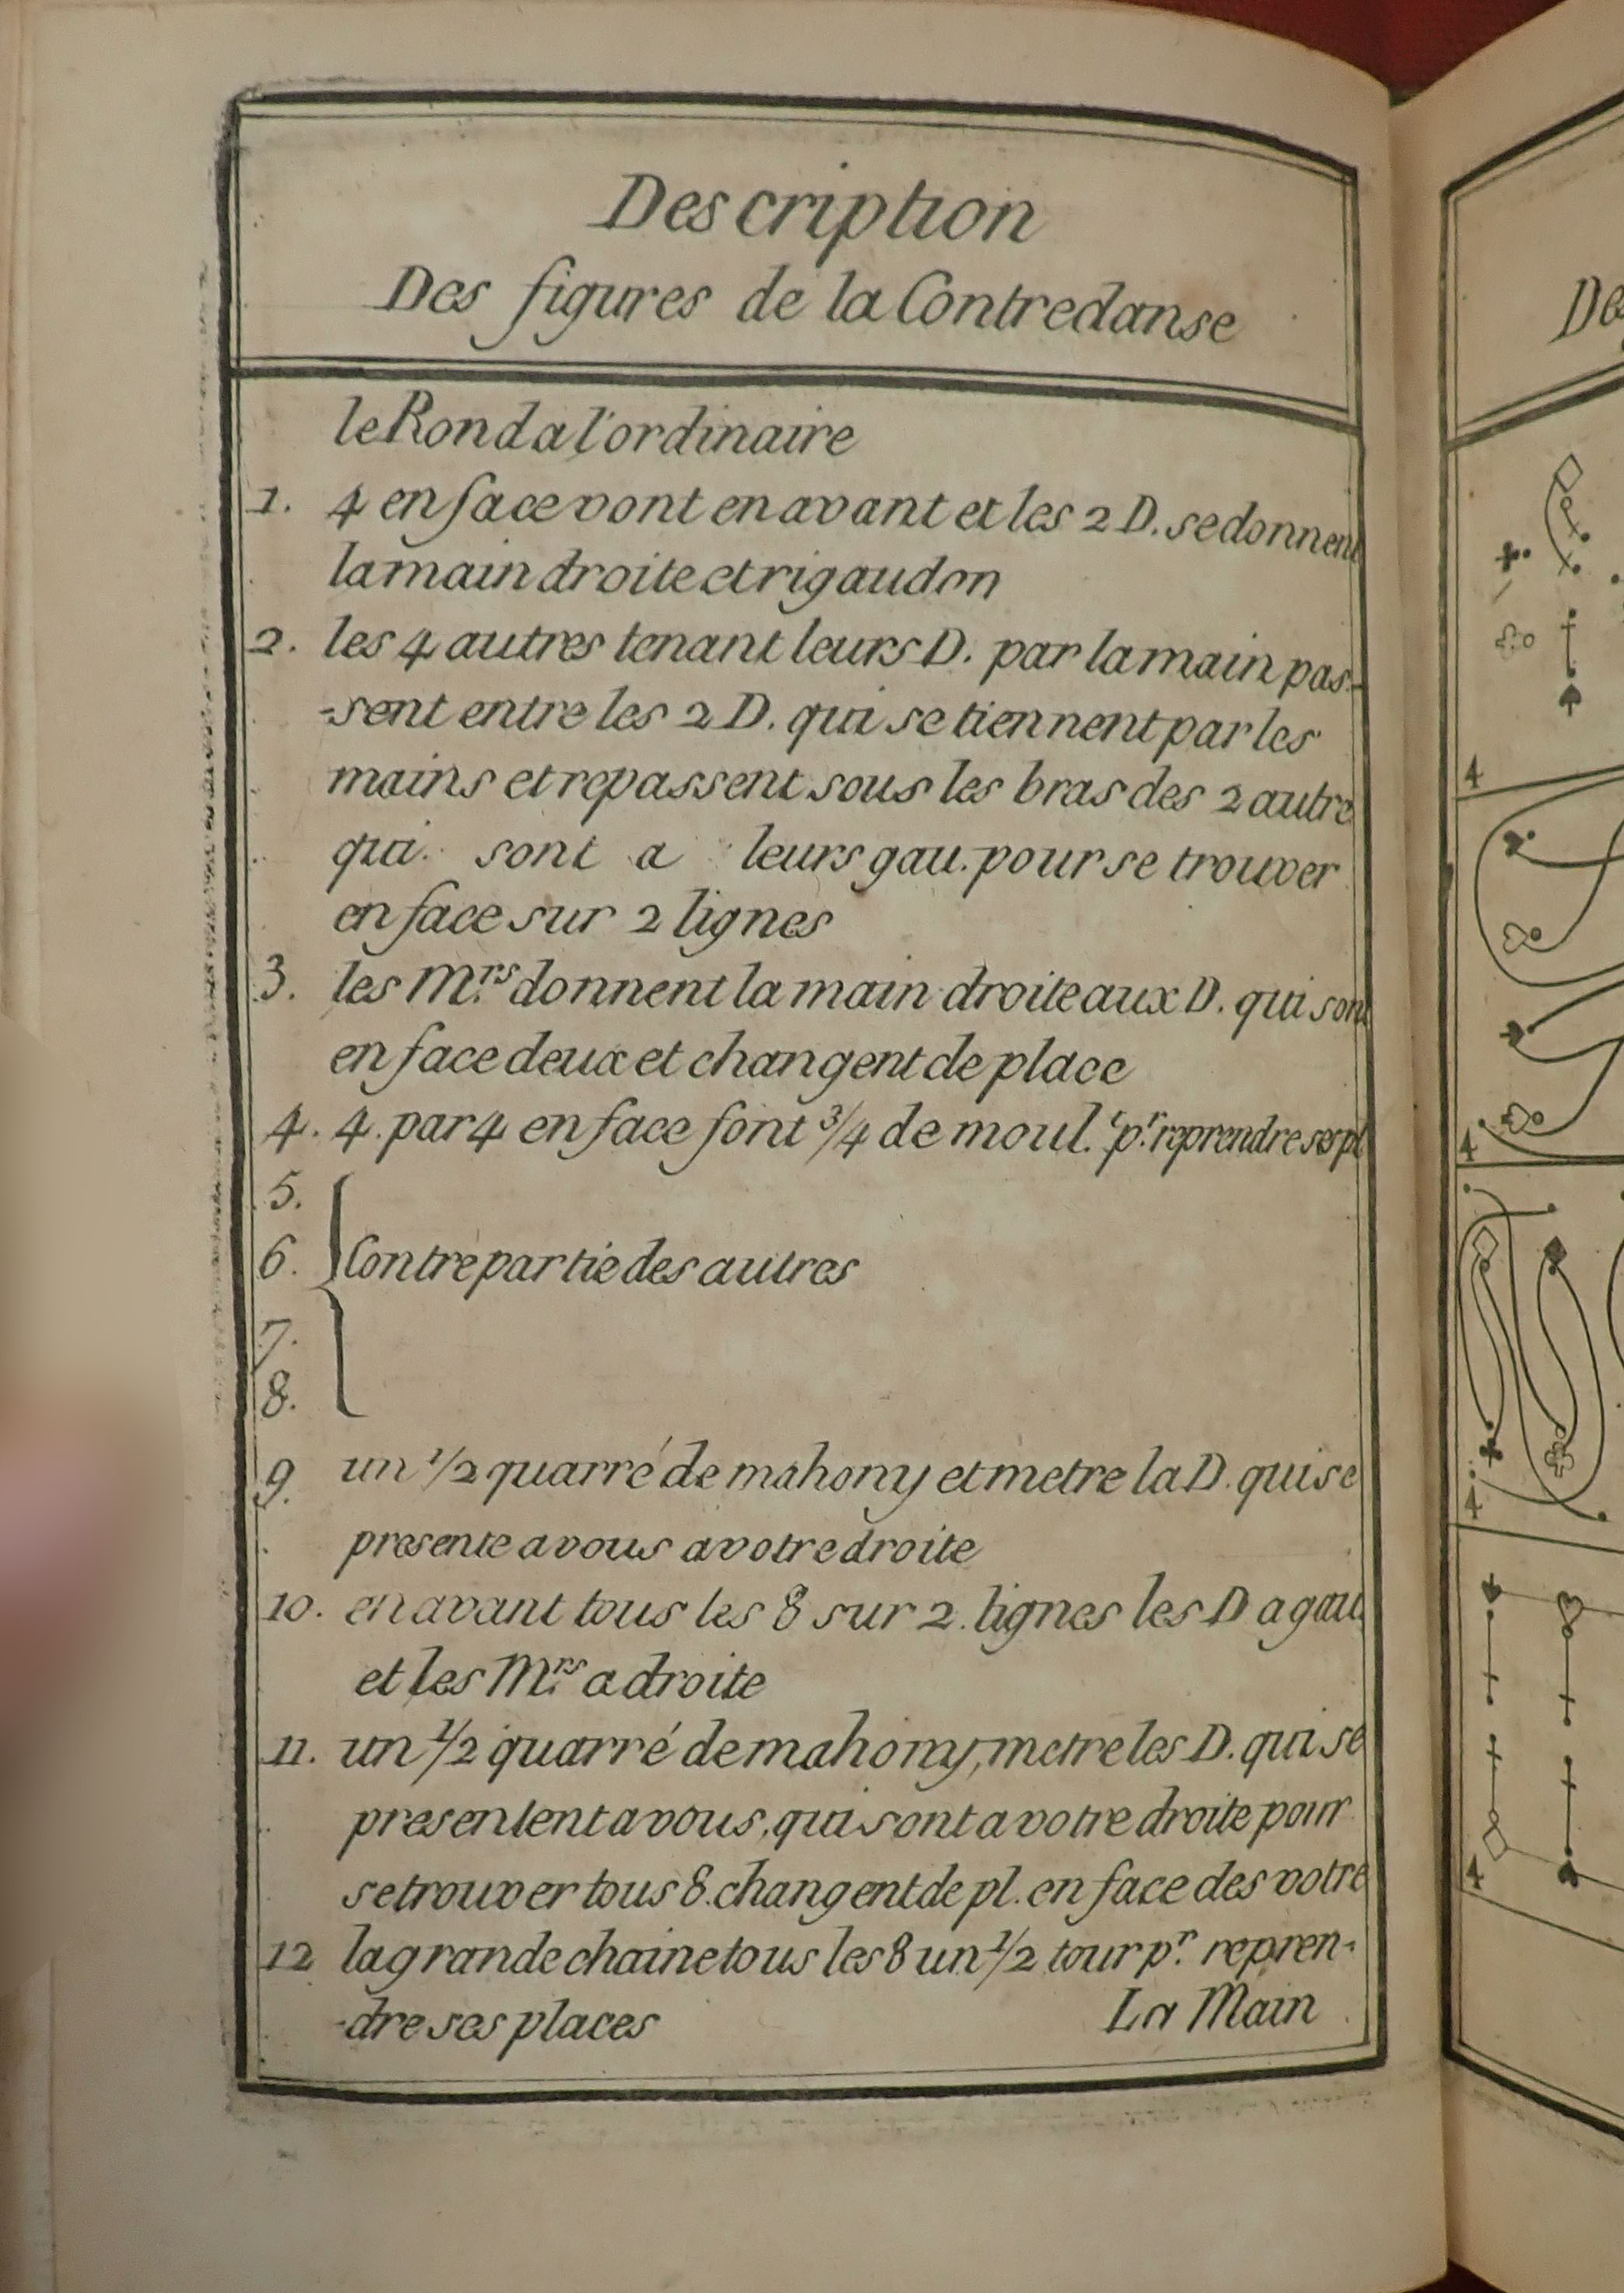 Description
Des figures de la Contredanse
le Rond a l'ordinaire
1. 4 en face vont en avant et les 2 D. se donnent
la main droite et rigaudon
2. les 4 autres tenant leurs D. par la main pas-
-sent entre les 2 D. qui se tiennent par les
mains et repassent sous les bras des 2 autre
qui sont a leurs gau. pour se trouver
en face sur 2 lignes
3. les M.rs donnent la main droite aux D. qui sont
en face deux et changent de place
4. 4. par 4 en face font 3/4 de moul. p.r reprendre ses pl
5.
6. Contrepartie des autres
7.
8.
9. un 1/2 quarré de mahony et metre la D. qui se
presente a vous a votre droite
10. en avant tous les 8 sur 2. lignes les D a gau.
et les M.rs a droite
11. un 1/2 quarré de mahony, metre les D. qui se
presentent a vous, qui sont a votre droite pour
se trouver tous 8. changent de pl. en face des votre
12 la grande chaine tous les 8 un 1/2 tour p.r repren-
-dre ses places
La Main
De
4
4
4
4